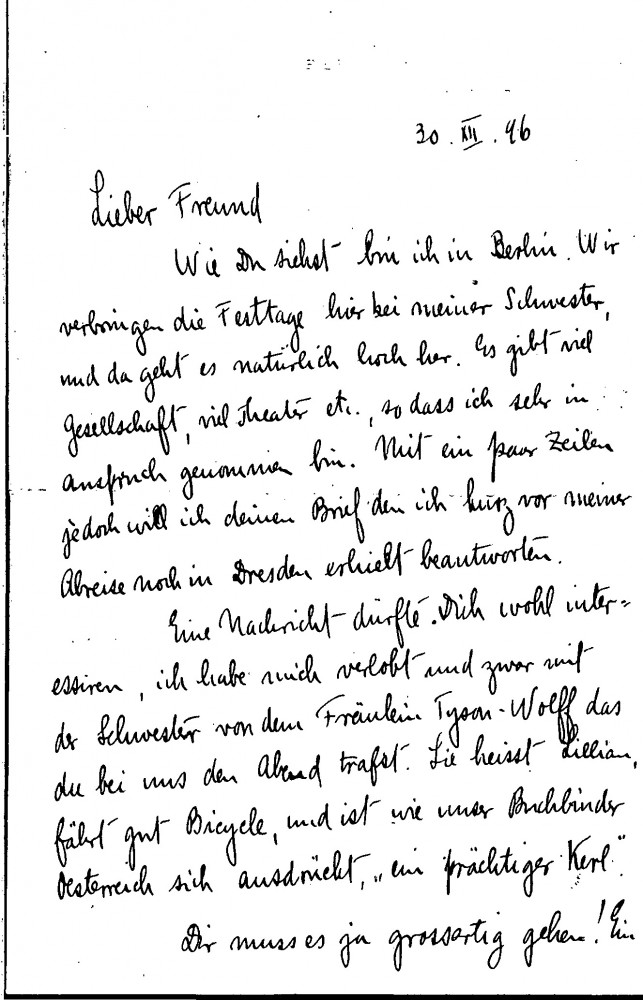 30. XII. 96
Lieber Freund
Wie Du siehst bin ich in Berlin. Wir
verbringen die Festtage hier bei meiner Schwester,
und da geht es natürlich hoch her. Es gibt viel
Gesellschaft, viel Theater etc., so dass ich sehr in
anspruch genommen bin. Mit ein paar Zeilen
jedoch will ich deinen Brief den ich kurz vor meiner
Abreise noch in Dresden erhielt beantworten.
Eine Nachricht dürfte Dich wohl inter=
essiren, ich habe mich verlobt und zwar mit
der Schwester von dem Fräulein Tyson-Wolff das
du bei uns den Abend trafst. Sie heisst Lillian,
fährt gut Bicycle, und ist wie unser Buchbinder
Oesterreich sich ausdrückt, „ein prächtiger Kerl“.
Dir muss es ja grossartig gehen! Ein